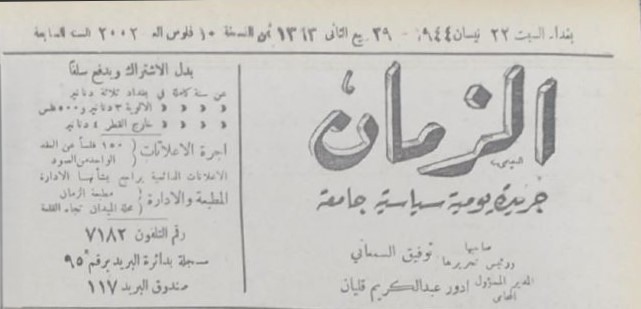 بغداد السبت ٢٢ نيسان ١٩٤٤ - ٢٩ ربيع الثاني ١٣٦٣ ثمن النسخة ١٠ فلوس العدد ٢٠٠٢ السنة السابعة
الزمان
جريدة يومية سياسية جامعة
صاحبها
ورئيس تحريرها توفيق السمعاني
المدير المسؤول ادور عبدالكريم قليان
المحامي
بدل الاشتراك ويدفع سلفاً
عن سنة كاملة في بغداد ثلاثة دنانير
» » » » الالوية ٣ دنانير و ٥٠٠ فلس
» » » » خارج القطر ٤ دنانير
اجرة الاعلانات ( ١٥٠ فلساً عن العقد
الواحد من العمود
الاعلانات الدائمية يراجع بشأنها الادارة
المطبعة والادارة ( مطبعة الزمان
محلة الميدان تجاه القلعة
رقم التلفون ٧١٨٢
مسجلة بدائرة البريد برقم ٩٥
صندوق البريد ١١٧